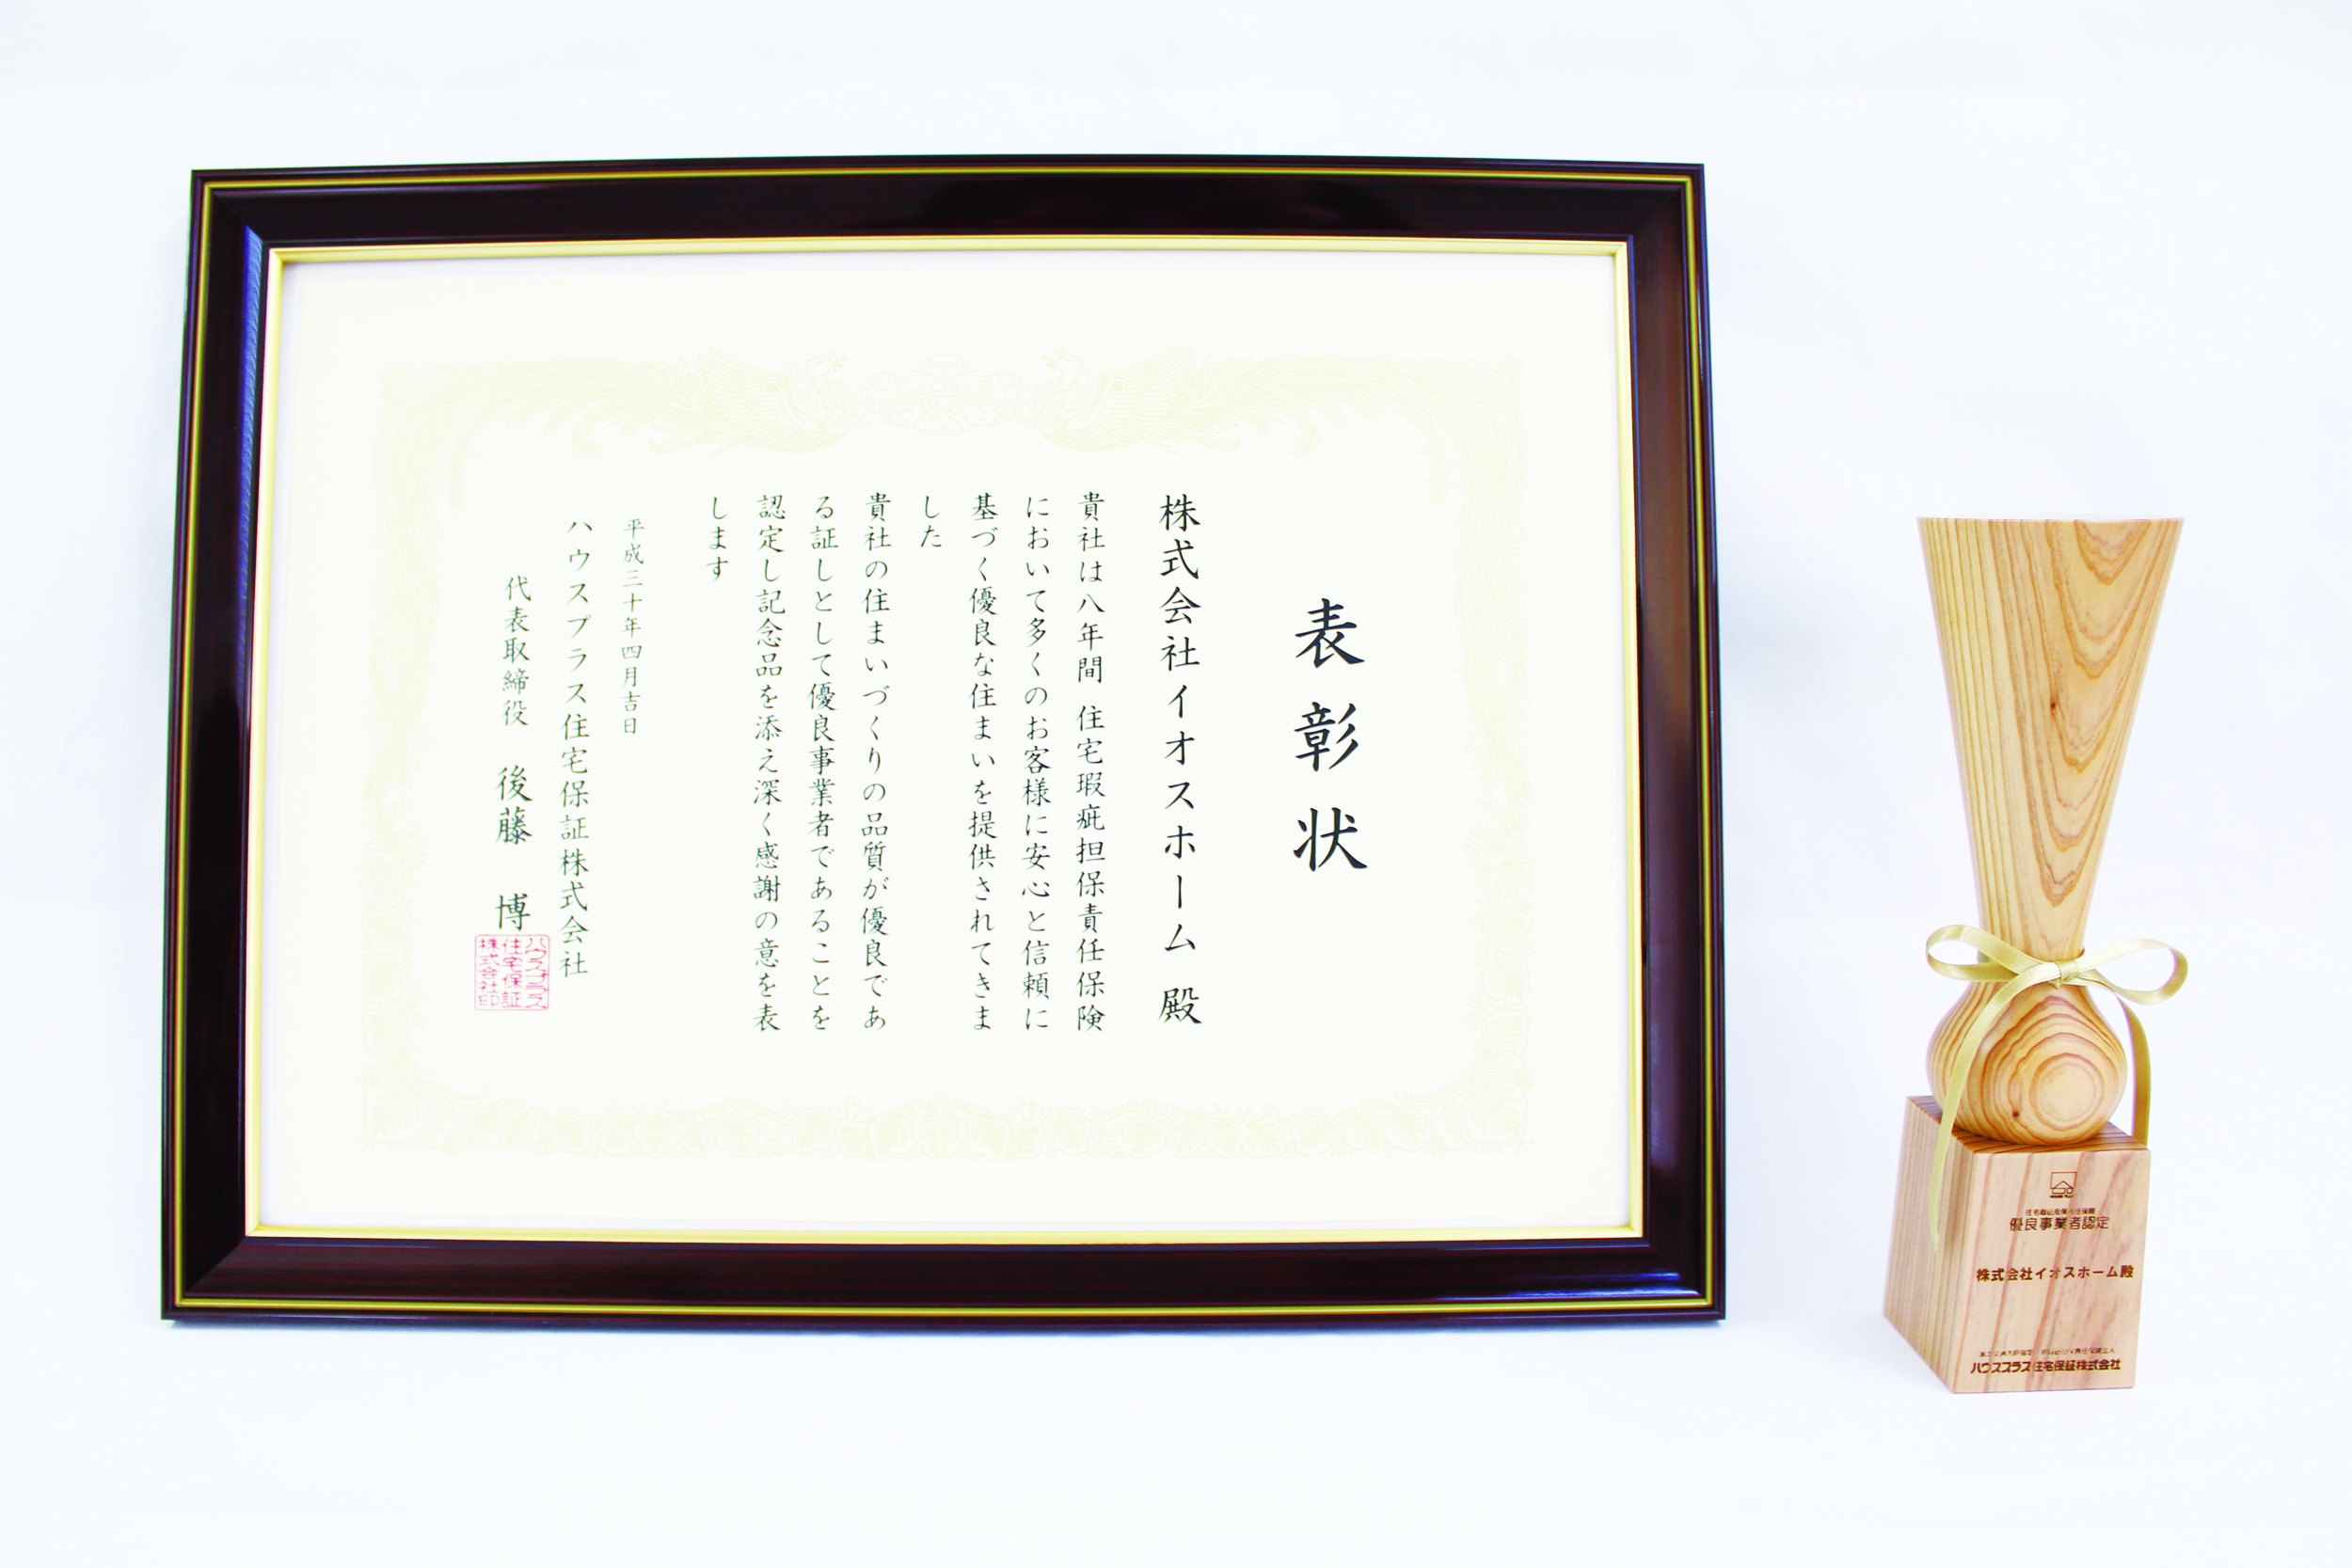 表彰状
株式会社イオスホーム 殿
貴社は八年間 住宅瑕疵担保責任保険
において多くのお客様に安心と信頼に
基づく優良な住まいを提供されてきま
した
貴社の住まいづくりの品質が優良であ
る証しとして優良事業者であることを
認定し記念品を添え深く感謝の意を表
します
平成三十年四月吉日
ハウスプラス住宅保証株式会社
代表取締役 後藤 博
ハウスプラス
住宅保証
株式会社印
優良事業者認定
株式会社イオスホーム殿
ハウスプラス住宅保証株式会社